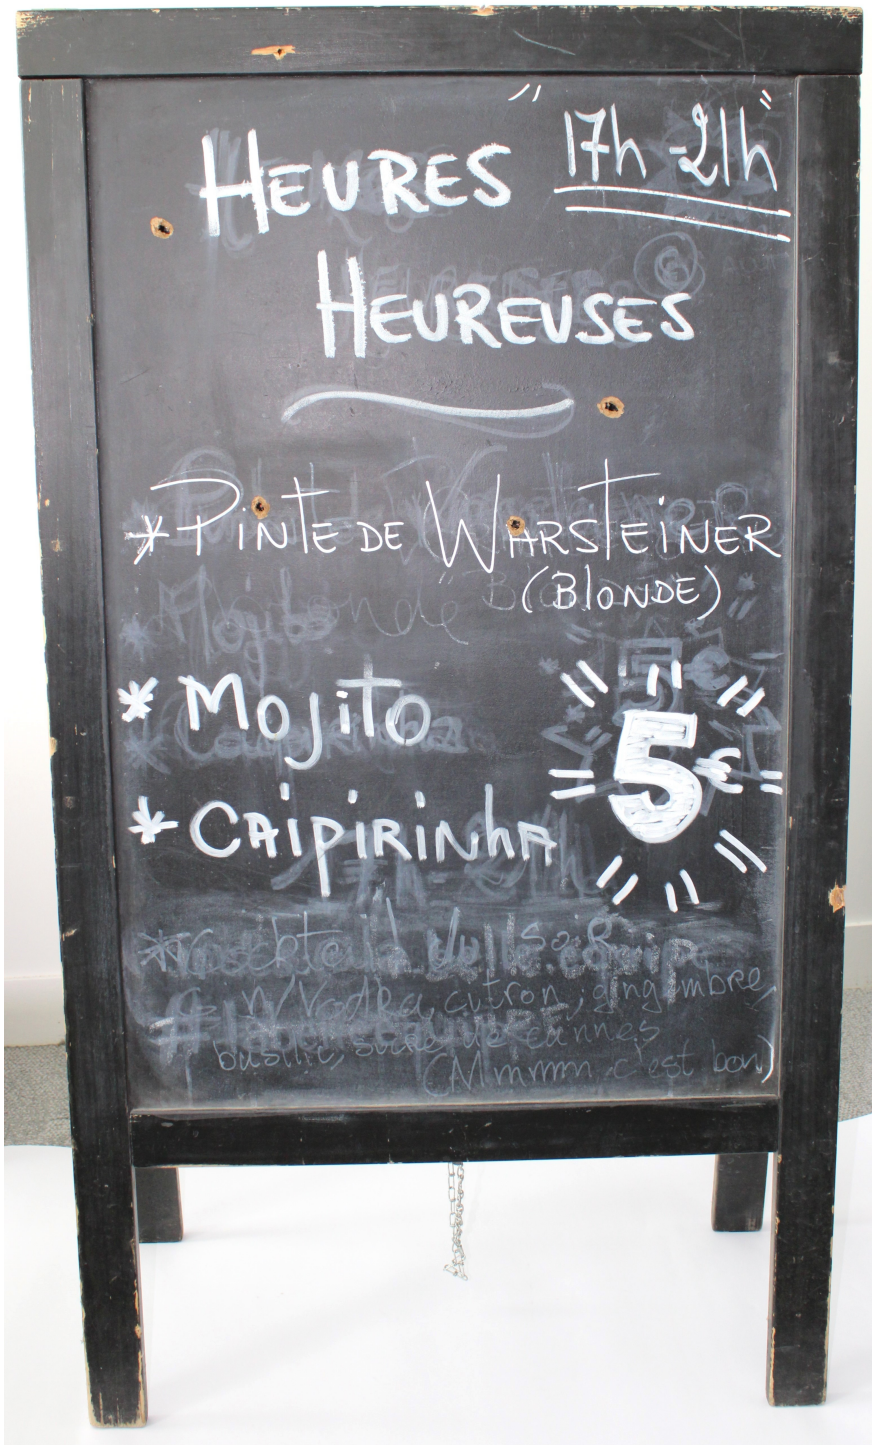 HEURES "17h-21h"
HEUREUSES
* PINTE DE WARSTEINER
(BLONDE)
* MOJITO
5€
* CAIPIRINHA
Vodka, citron, gingimbre,
basilic, sucre de cannes
(Mmmm c'est bon)